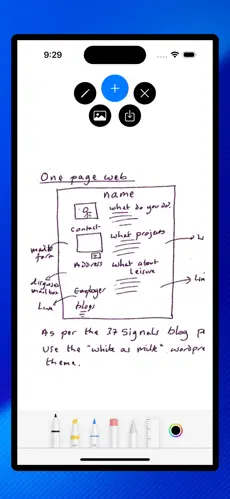 9:29
One page web
name
what do you do?
Contact
what projects
mailto
form
Address
what about
leisure
mailbox
Employer
blogs
As per the 37 Signals blog p
Use the "white as milk" wordpre
theme.